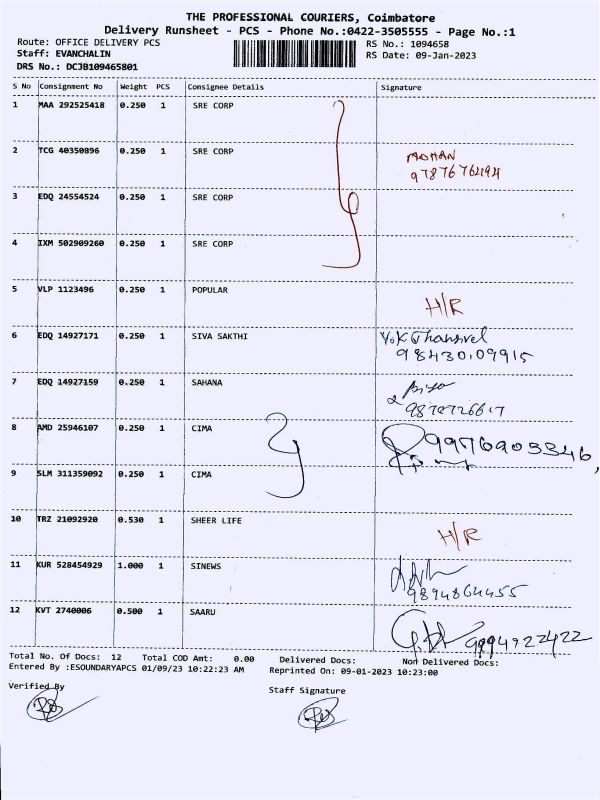 THE PROFESSIONAL COURIERS, Coimbatore
Delivery Runsheet - PCS - Phone No.:0422-3505555 - Page No.:1
Route: OFFICE DELIVERY PCS RS No.: 1094658
Staff: EVANCHALIN RS Date: 09-Jan-2023
DRS No.: DCJB109465801
S No Consignment No Weight PCS Consignee Details Signature
1 MAA 292525418 0.250 1 SRE CORP
2 TCG 40350896 0.250 1 SRE CORP MOHAN
9787676494
3 EDQ 24554524 0.250 1 SRE CORP
4 IXM 502909260 0.250 1 SRE CORP
5 VLP 1123496 0.250 1 POPULAR
H/R
6 EDQ 14927171 0.250 1 SIVA SAKTHI
9843009915
7 EDQ 14927159 0.250 1 SAHANA
8 AMD 25946107 0.250 1 CIMA
9976903346
9 SLM 311359092 0.250 1 CIMA
10 TRZ 21092920 0.530 1 SHEER LIFE
H/R
11 KUR 528454929 1.000 1 SINEWS
9894864455
12 KVT 2740006 0.500 1 SAARU
9994922422
Total No. Of Docs: 12 Total COD Amt: 0.00 Delivered Docs: Non Delivered Docs:
Entered By :ESOUNDARYAPCS 01/09/23 10:22:23 AM Reprinted On: 09-01-2023 10:23:00
Verified By Staff Signature